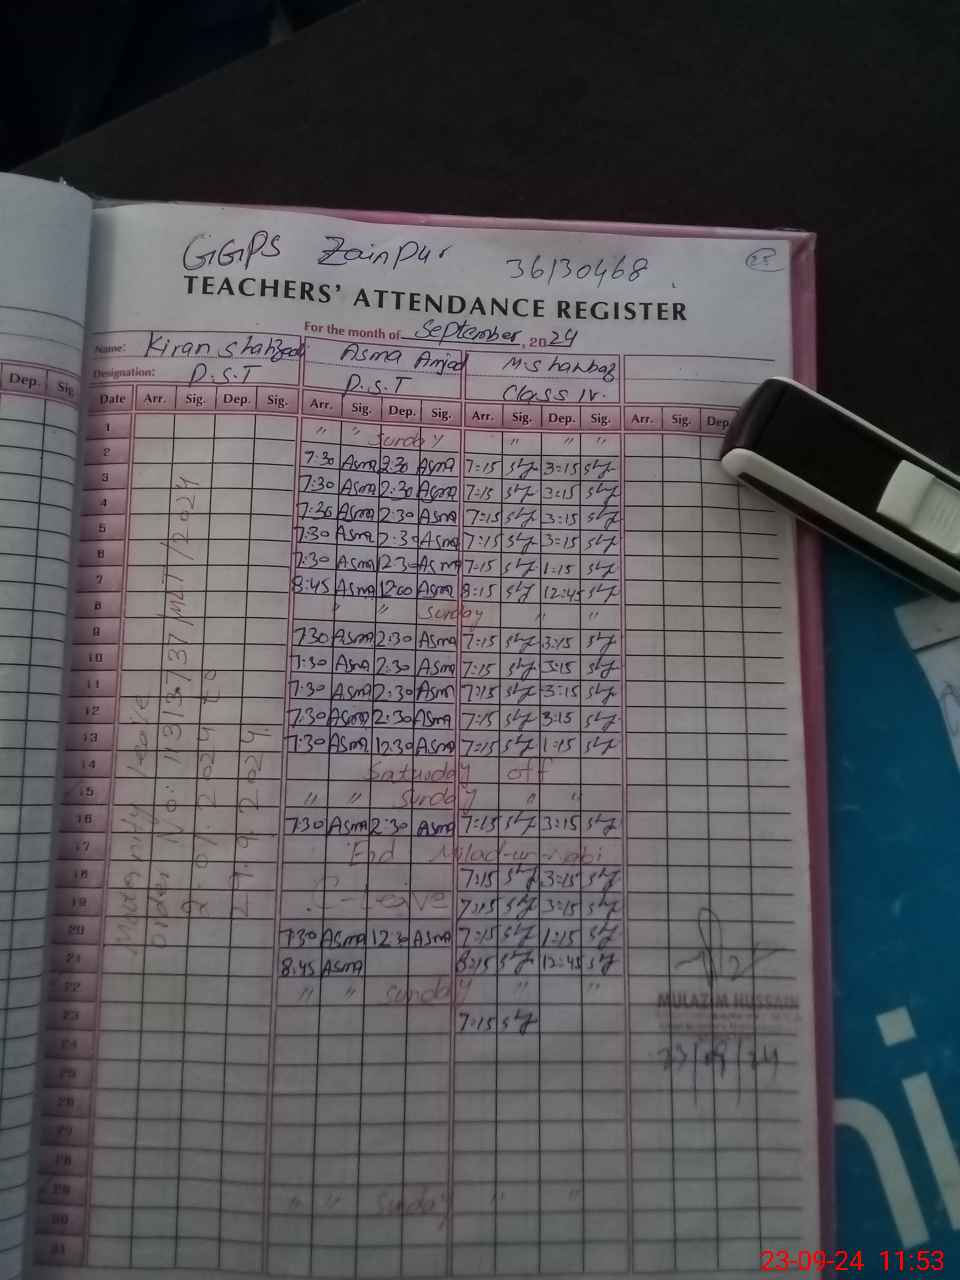 GGPS Zainpur 36130468
TEACHERS' ATTENDANCE REGISTER
For the month of September, 2024
Name: Kiran Shahzadi Asma Amjad M. Shahbaz
Designation: P.S.T P.S.T Class IV.
Dep. Sig.
Date Arr. Sig. Dep. Sig. Arr. Sig. Dep. Sig. Arr. Sig. Dep. Sig. Arr. Sig. Dep.
1 " " Sunday " " "
2 7:30 Asma 2:30 Asma 7:15 3:15
3 7:30 Asma 2:30 Asma 7:15 3:15
4 7:30 Asma 2:30 Asma 7:15 3:15
5 7:30 Asma 2:30 Asma 7:15 3:15
6 7:30 Asma 12:30 Asma 7:15 1:15
7 8:45 Asma 12:00 Asma 8:15 12:45
8 " " Sunday " "
9 7:30 Asma 2:30 Asma 7:15 3:15
10 7:30 Asma 2:30 Asma 7:15 3:15
11 7:30 Asma 2:30 Asma 7:15 3:15
12 7:30 Asma 2:30 Asma 7:15 3:15
13 7:30 Asma 12:30 Asma 7:15 1:15
14 Saturday off
15 " " Sunday " "
16 7:30 Asma 2:30 Asma 7:15 3:15
17 Eid Milad-un-nabi
18 7:15 3:15
19 C-Leave 7:15 3:15
20 7:30 Asma 12:30 Asma 7:15 1:15
21 8:45 Asma 8:15 12:45
22 " " Sunday " "
23 7:15
24
25
26
27
28
29 " " Sunday " "
30
31
Leave
order No: /MLT/2024
2.07.2024 to
29.9.2024
MULAZIM HUSSAIN
23/09/24
23-09-24 11:53